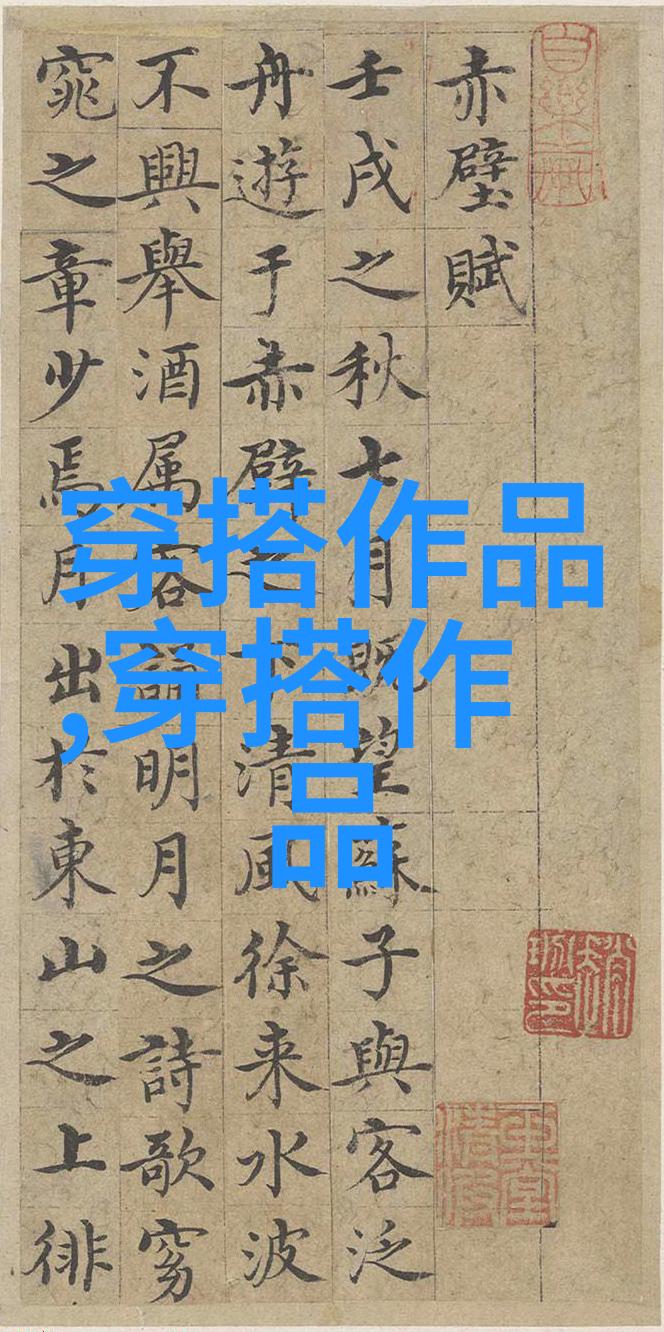 赤壁賦
壬戌之秋七月既望蘇子與客泛
舟遊于赤壁之下清風徐来水波
不興舉酒属客誦明月之詩歌窈
窕之章少焉月出於東山之上徘
穿搭作品
,穿搭作
品